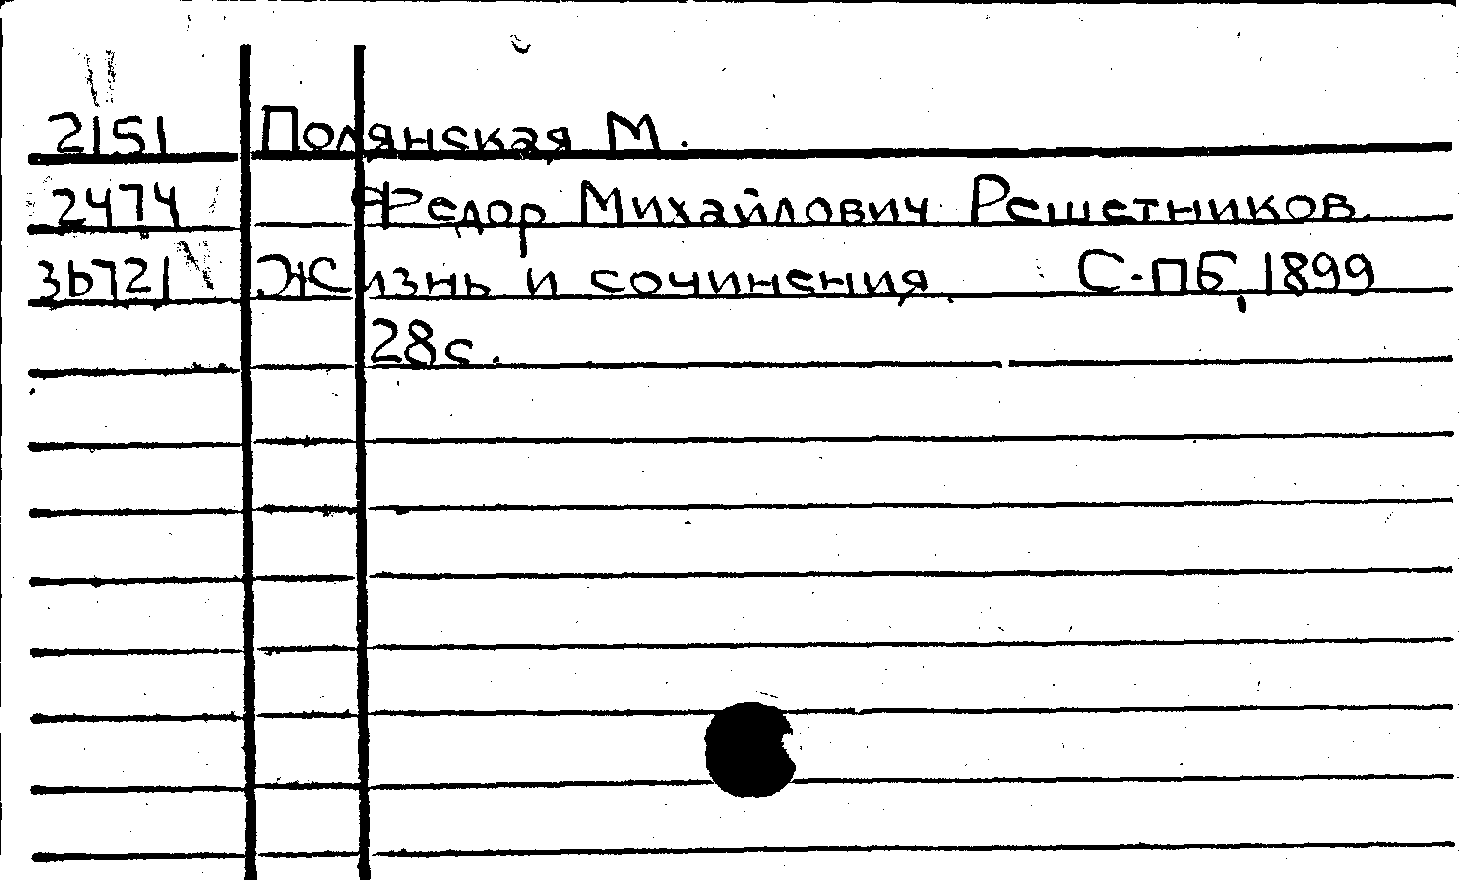 2151 Полянская М.
2474 Федор Михайлович Решетников.
3b721 Жизнь и сочинения. С-Пб, 1899
28с.